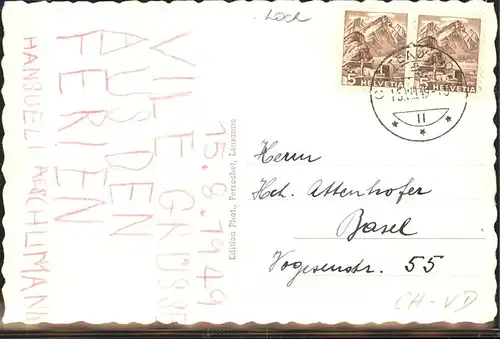 Loch
15.8.1949
VILE GRÜSSE
AUS DEN
FERIEN
HANSUELI AESCHLIMANN
Edition Phot., Perrochet, Lausanne
5 HELVETIA
5 HELVETIA
II
Herrn
Hch. Attenhofer
Basel
Vogesenstr. 55
CH-VD